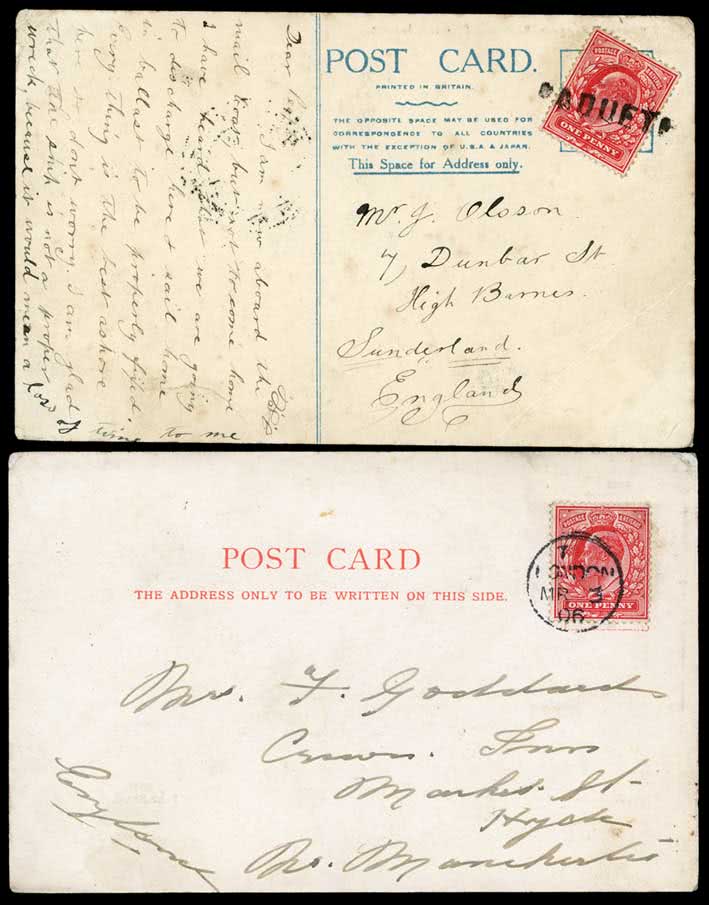 Dear Peggy I am now aboard the
mail boat but not to come home
I have heard that we are going
to discharge here & sail home
in ballast to be properly fixed.
Every thing is the best ashore
here so don't worry. I am glad
that the ship is not a proper
wreck, because it would mean a loss of time to me
POST CARD.
PRINTED IN BRITAIN.
THE OPPOSITE SPACE MAY BE USED FOR
CORRESPONDENCE TO ALL COUNTRIES
WITH THE EXCEPTION OF U.S.A & JAPAN.
This Space for Address only.
POSTAGE REVENUE
ONE PENNY
PAQUET
Mr. J. Olsson.
7, Dunbar St
High Barnes.
Sunderland.
England
POST CARD
THE ADDRESS ONLY TO BE WRITTEN ON THIS SIDE.
POSTAGE REVENUE
ONE PENNY
LONDON
MR 3
06
Mr. F. Goddard
Crown. Inn
Market St-
Hyde
Nr. Manchester
England